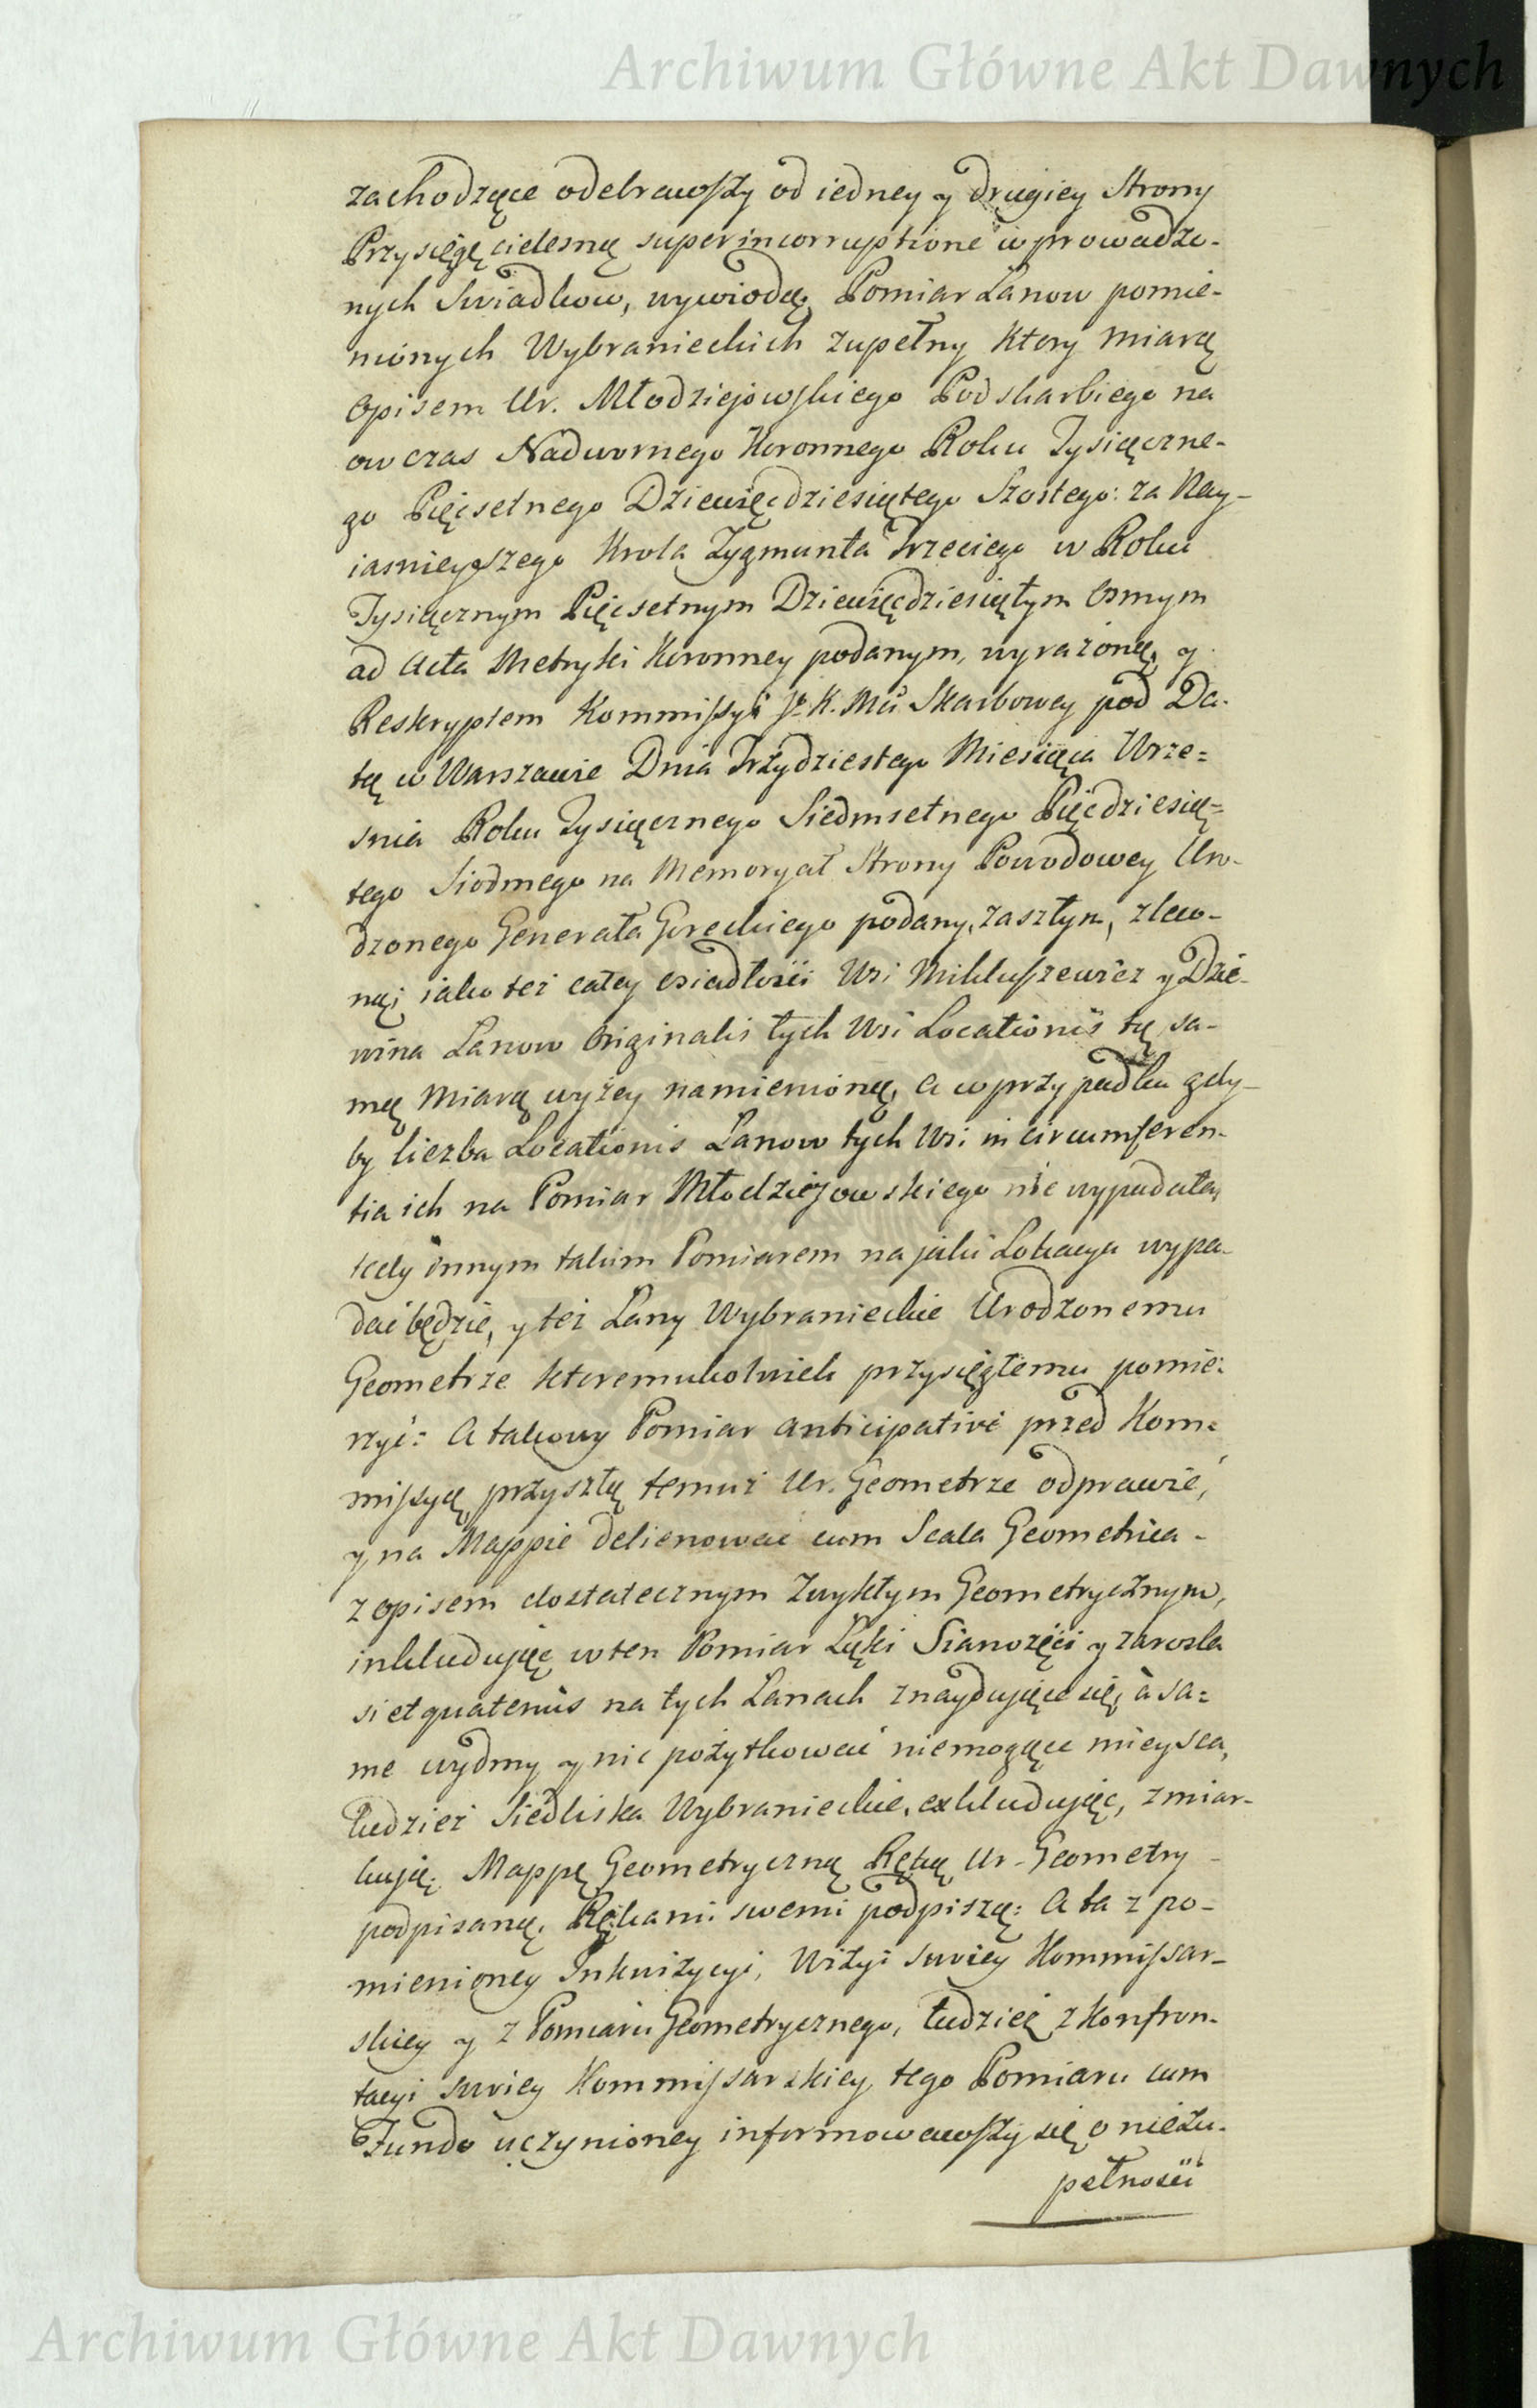 Archiwum Główne Akt Dawnych
zachodzące odebrawszy od iedney y drugiey Strony
Przysięgę cielesną super incorruptione wprowadzo-
nych Swiadkow, wywiodą Pomiar Lanow pomie-
nionych Wybranieckich zupełny ktory miarą
Opisem Ur. Młodziejowskiego Podskarbiego na
ow czas Nadwornego Koronnego Roku Tysiączne-
go Pięćsetnego Dziewięćdziesiątego Szostego: za Nay-
iasnieyszego Krola Zygmunta Trzeciego w Roku
Tysiącznym Pięcsetnym Dziewięcdziesiątym Osmym
ad Acta Metryki Koronney podanym, wyrażoną, y
Reskryptem Kommissyi Jo K. Mci Skarbowey pod Da-
tą w Warszawie Dnia Trzydziestego Miesiąca Wrze=
snia Roku Tysiącznego Siedmsetnego Pięcdziesią=
tego Siodmego na Memoryał Strony Powodowey Uro-
dzonego Generała Goreckiego podany, zaszłym, zleco-
ną; iako też całey osiadłości Wsi Mikluszewicz y Dzie-
wina Lanow Originalis tych Wsi Locationis tą sa-
mą Miarą wyżey namienioną, a w przypadku gdy-
by liczba Locationis Lanow tych Wsi in circumferen-
tia ich na Pomiar Młodziejowskiego nie wypadała,
tedy innym takim Pomiarem na jaki Lokacya wypa-
dać będzie, y też Lany Wybranieckie Urodzonemu
Geometrze ktoremukolwiek przysięgłemu pomie-
rzyć: A takowy Pomiar anticipative przed Kom=
missyą przyszłą temuż Ur. Geometrze odprawić,
y na Mappie delienować cum Scala Geometrica -
z opisem dostatecznym zwykłym Geometrycznym,
inkludując w ten Pomiar Łąki Sianożęci y zarosla
si et quatenus na tych Lanach znaydujące się, à sa=
me wydmy y nic pożytkować niemogące mieysca,
tudzież Siedliska Wybranieckie, exkludując, zmiar-
kują; Mappę Geometryczną Ręką Ur. Geometry -
podpisaną, Rękami swemi podpiszą: A ta z po-
mienioney Inkwizycyi, Wizyi swoiey Kommissar-
skiey y z Pomiaru Geometrycznego, tudzież z Konfron-
tacyi swoiey Kommissarskiey tego Pomiaru cum
Fundo uczynioney informowawszy się o niezu-
pełności
Archiwum Główne Akt Dawnych